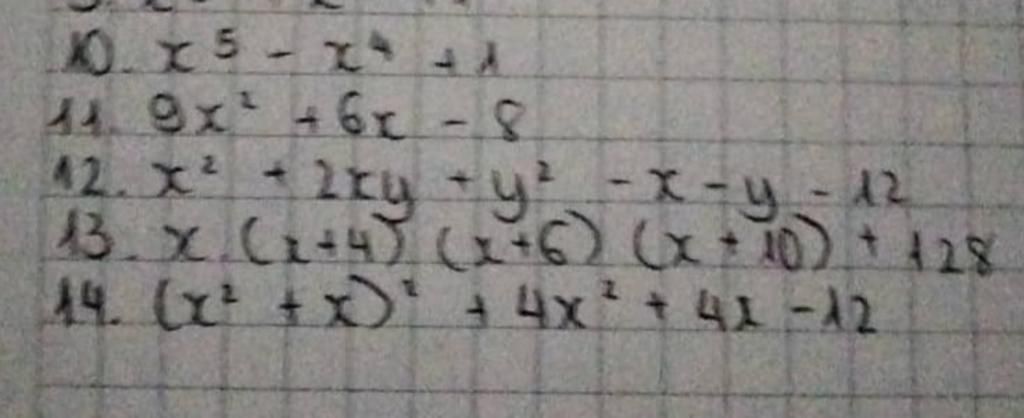 10. x⁵ - x⁴ + 1
11. 9x² + 6x - 8
12. x² + 2xy + y² - x - y - 12
13. x.(x+4)(x+6)(x+10) + 128
14. (x² + x)² + 4x² + 4x - 12